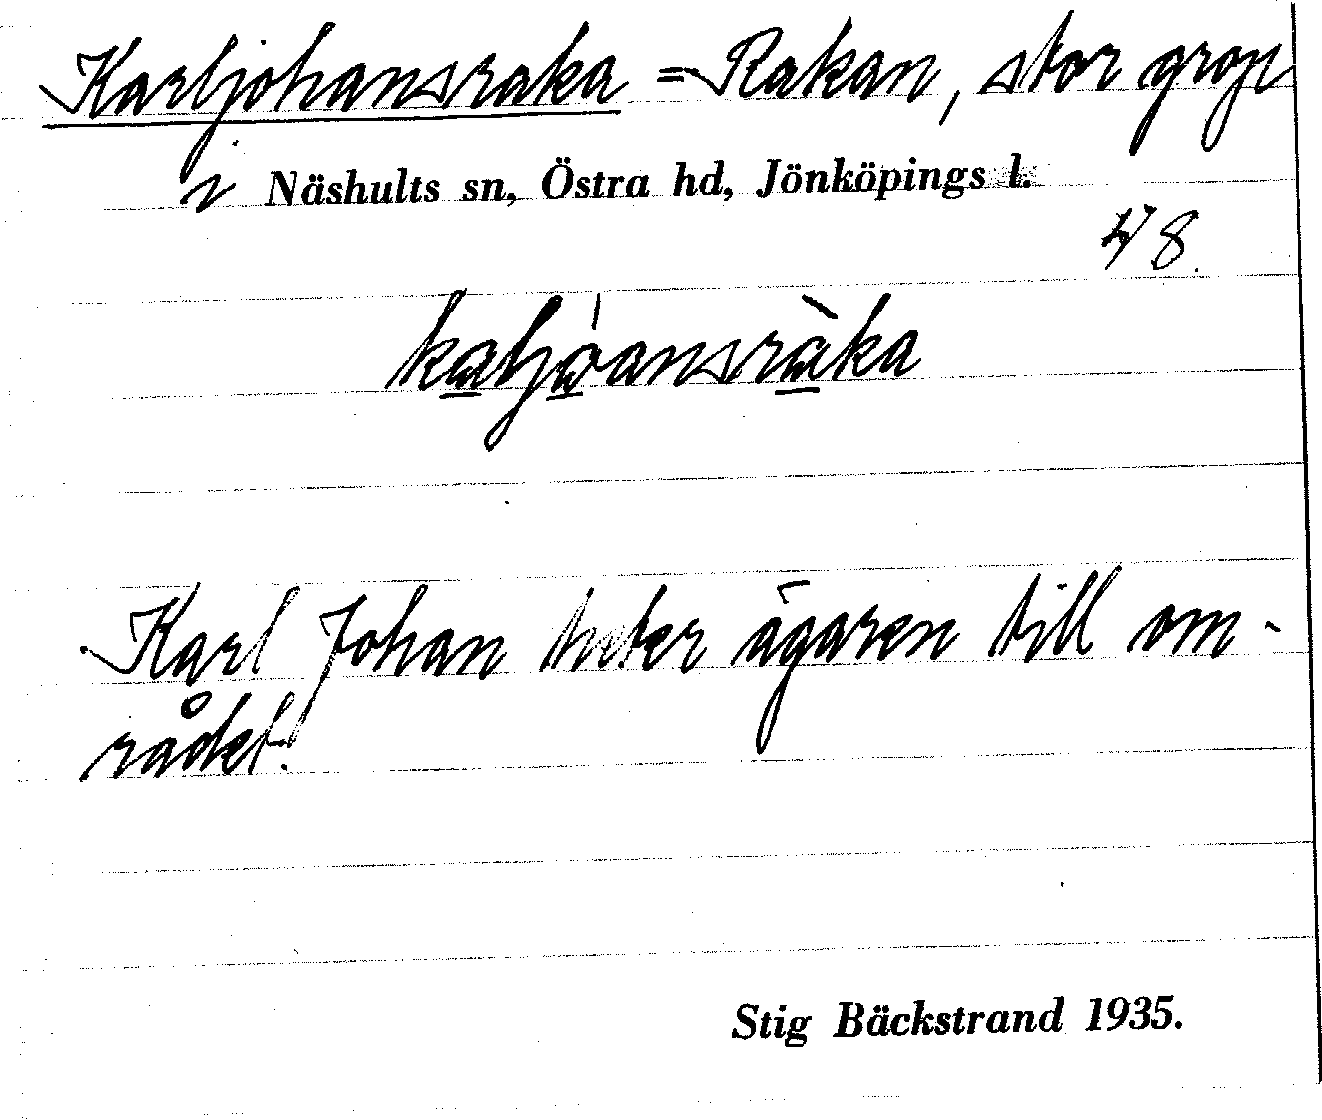 Karljohansraka = Rakan, stor grop
i Näshults sn, Östra hd, Jönköpings l.
48.
kaljo̱ansrà̱ka
Karl Johan heter ägaren till om-
rådet.
Stig Bäckstrand 1935.